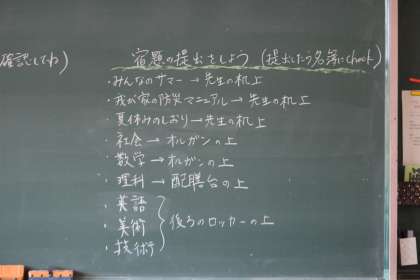 確認してね)
宿題の提出をしよう (提出したら名簿にcheck)
・みんなのサマー→先生の机上
・我が家の防災マニュアル→先生の机上
・夏休みのしおり→先生の机上
・社会→オルガンの上
・数学→オルガンの上
・理科→配膳台の上
・英語
・美術 後ろのロッカーの上
・技術